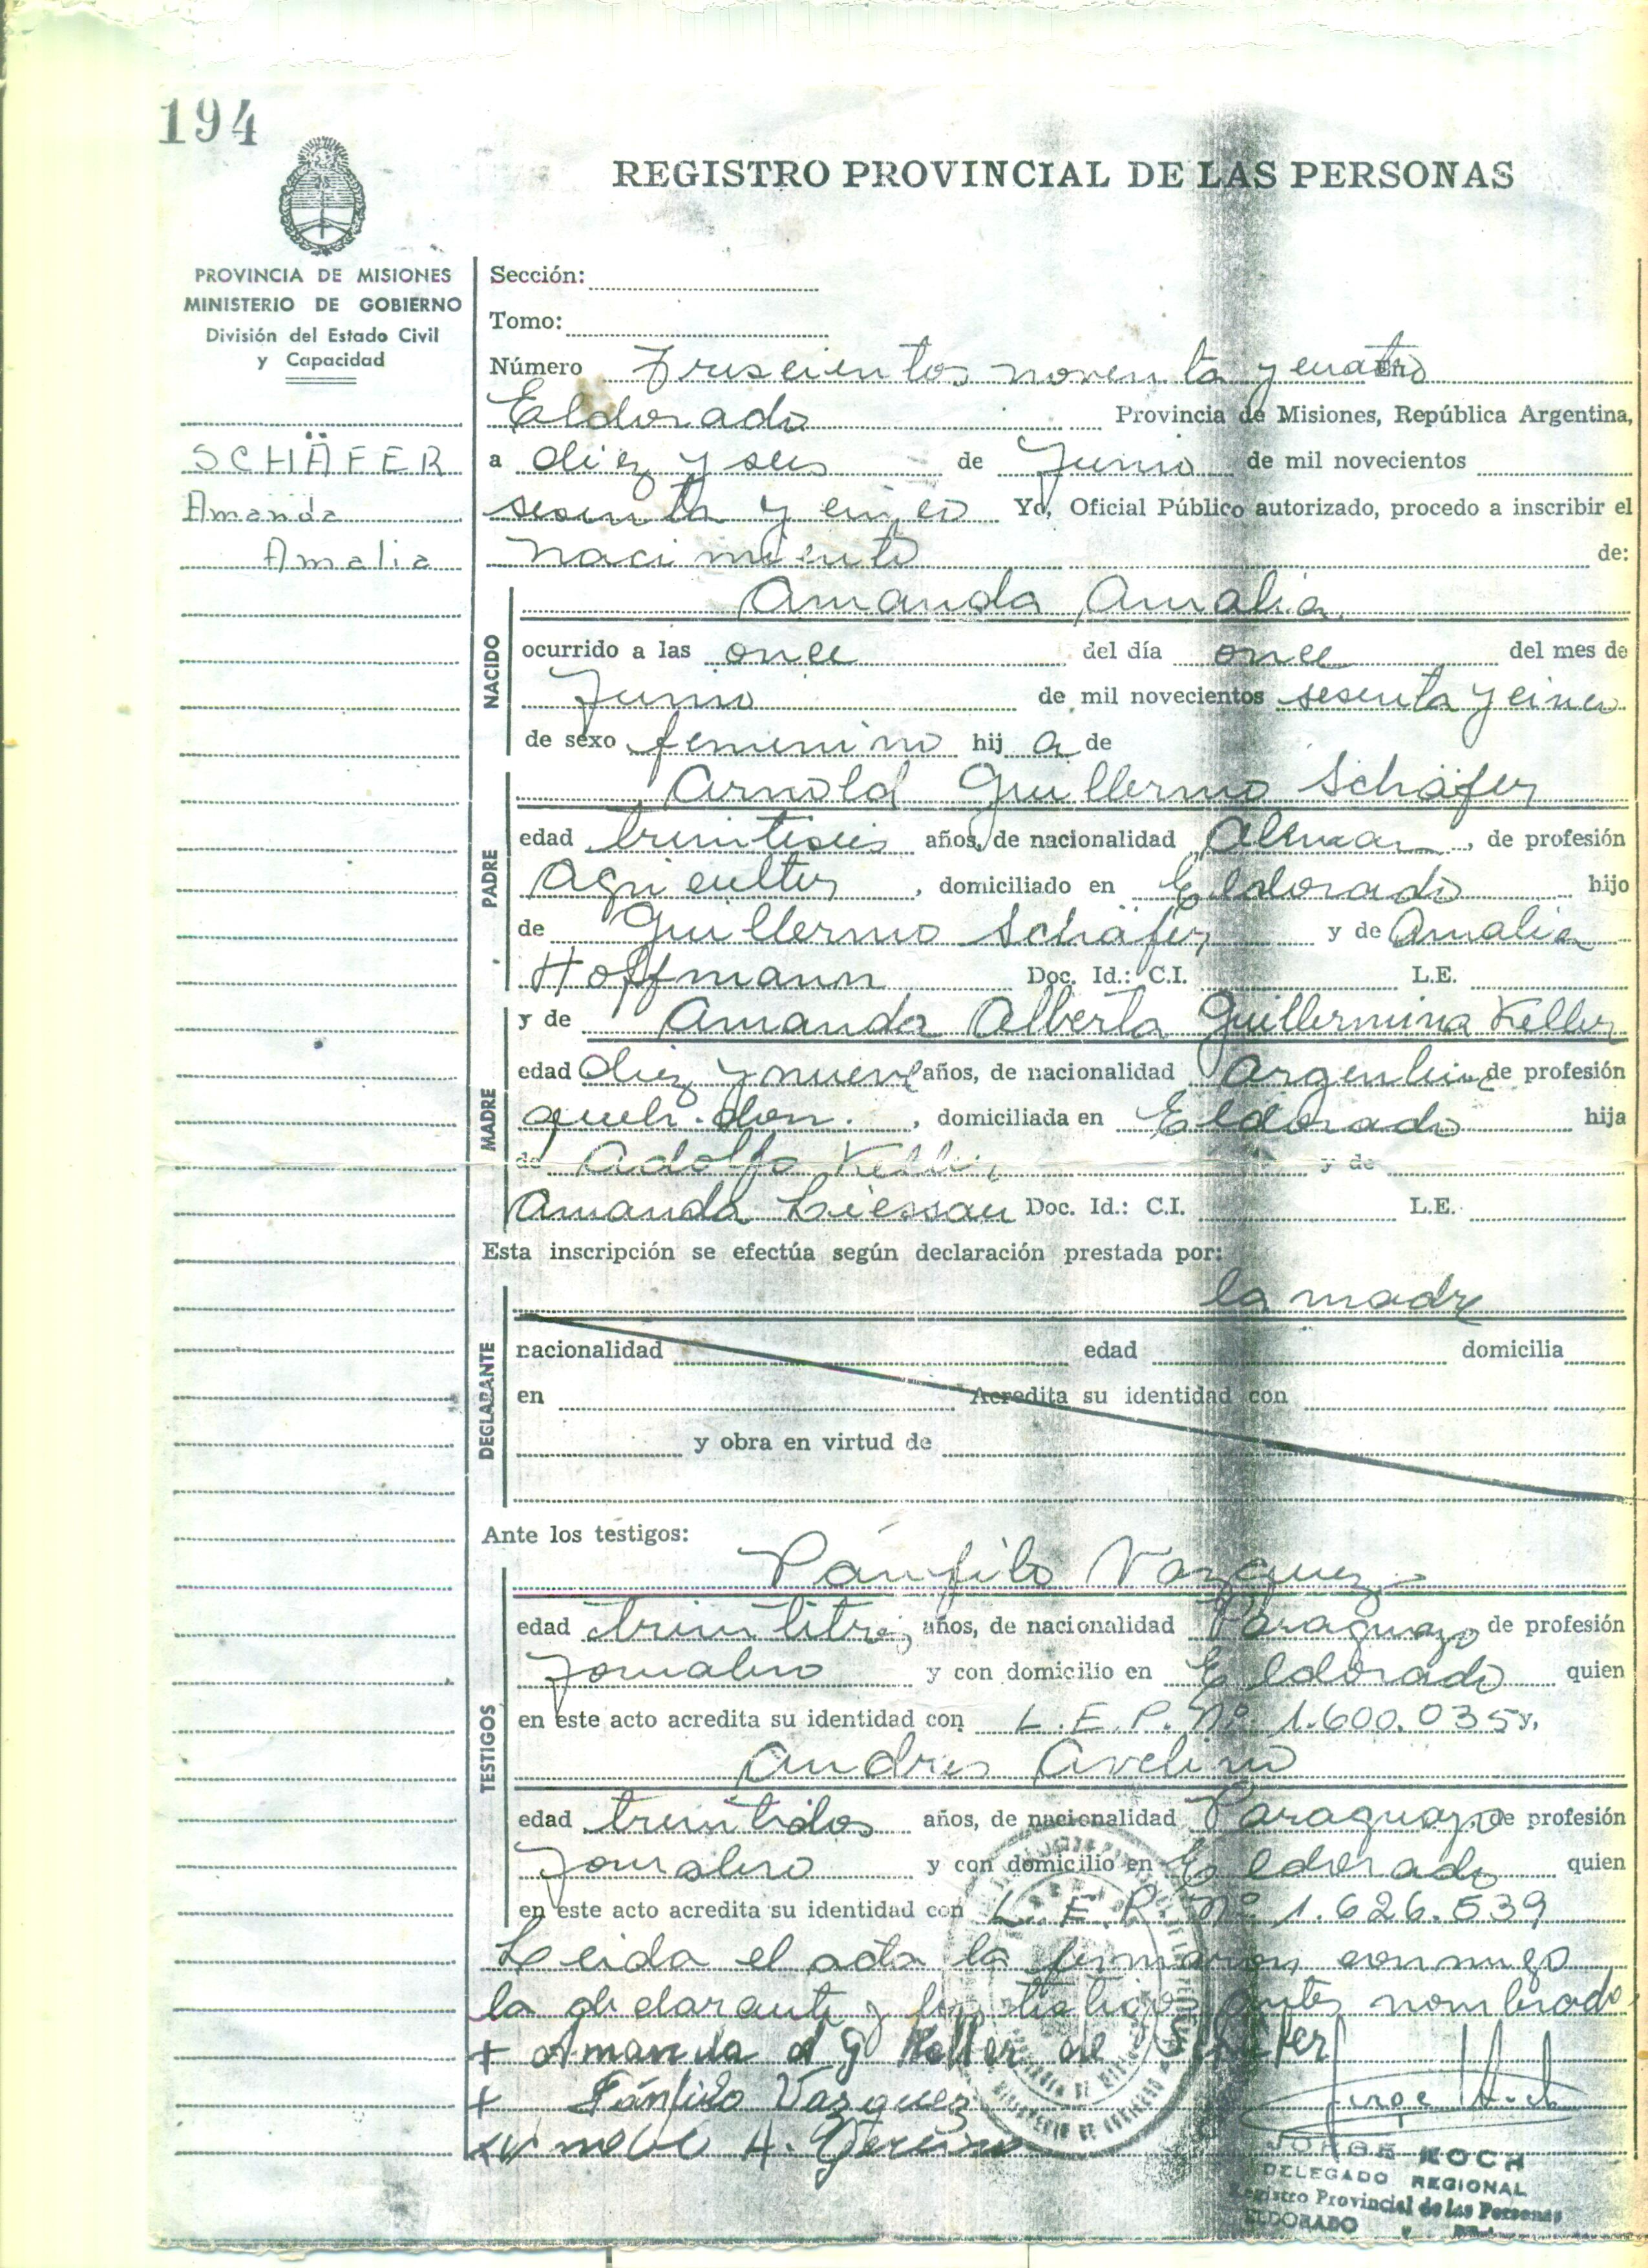 194
REGISTRO PROVINCIAL DE LAS PERSONAS
PROVINCIA DE MISIONES
MINISTERIO DE GOBIERNO
División del Estado Civil
y Capacidad
SCHÄFER
Amanda
Amalia
Sección:
Tomo:
Número Trescientos noventa y cuatro En
Eldorado Provincia de Misiones, República Argentina,
a diez y seis de Junio de mil novecientos
sesenta y cinco Yo, Oficial Público autorizado, procedo a inscribir el
nacimiento de:
NACIDO
Amanda Amalia
ocurrido a las once del día once del mes de
Junio de mil novecientos sesenta y cinco
de sexo femenino hij a de
PADRE
Arnold Guillermo Schäfer
edad treintiseis años, de nacionalidad Aleman, de profesión
Agricultor, domiciliado en Eldorado hijo
de Guillermo Schäfer y de Amalia
Hoffmann Doc. Id.: C.I. L.E.
MADRE
y de Amanda Alberta Guillermina Keller
edad diez y nueve años, de nacionalidad Argentina de profesión
queh. dom., domiciliada en Eldorado hija
de Adolfo Keller y de
Amanda Liessau Doc. Id.: C.I. L.E.
Esta inscripción se efectúa según declaración prestada por:
DECLARANTE
la madre
nacionalidad edad domicilia
en Acredita su identidad con
y obra en virtud de
Ante los testigos:
TESTIGOS
Pánfilo Vazquez
edad treintitres años, de nacionalidad Paraguayo de profesión
Jornalero y con domicilio en Eldorado quien
en este acto acredita su identidad con L.E.P. Nº 1.600.035 y,
Andres Avelino
edad treintidos años, de nacionalidad Paraguayo, de profesión
Jornalero y con domicilio en Eldorado quien
en este acto acredita su identidad con L.E.P. Nº 1.626.539
Leida el acta la firmaron conmigo
la declarante y los testigos antes nombrados
+ Amanda A G Keller de Schäfer
+ Pánfilo Vazquez
JORGE KOCH
DELEGADO REGIONAL
Registro Provincial de las Personas
ELDORADO